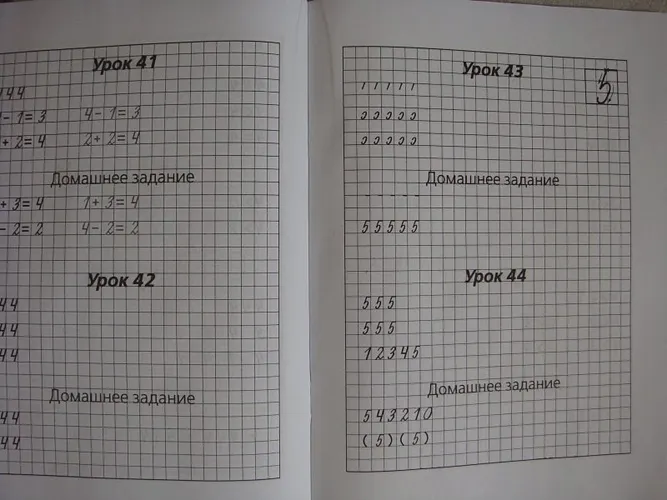 Урок 41
4 4 4
4 - 1 = 3 4 - 1 = 3
+ 2 = 4 2 + 2 = 4
Домашнее задание
+ 3 = 4 1 + 3 = 4
- 2 = 2 4 - 2 = 2
Урок 42
4 4
4 4
4 4
Домашнее задание
4 4
4 4
Урок 43
5
Домашнее задание
5 5 5 5 5
Урок 44
5 5 5
5 5 5
1 2 3 4 5
Домашнее задание
5 4 3 2 1 0
( 5 ) ( 5 )